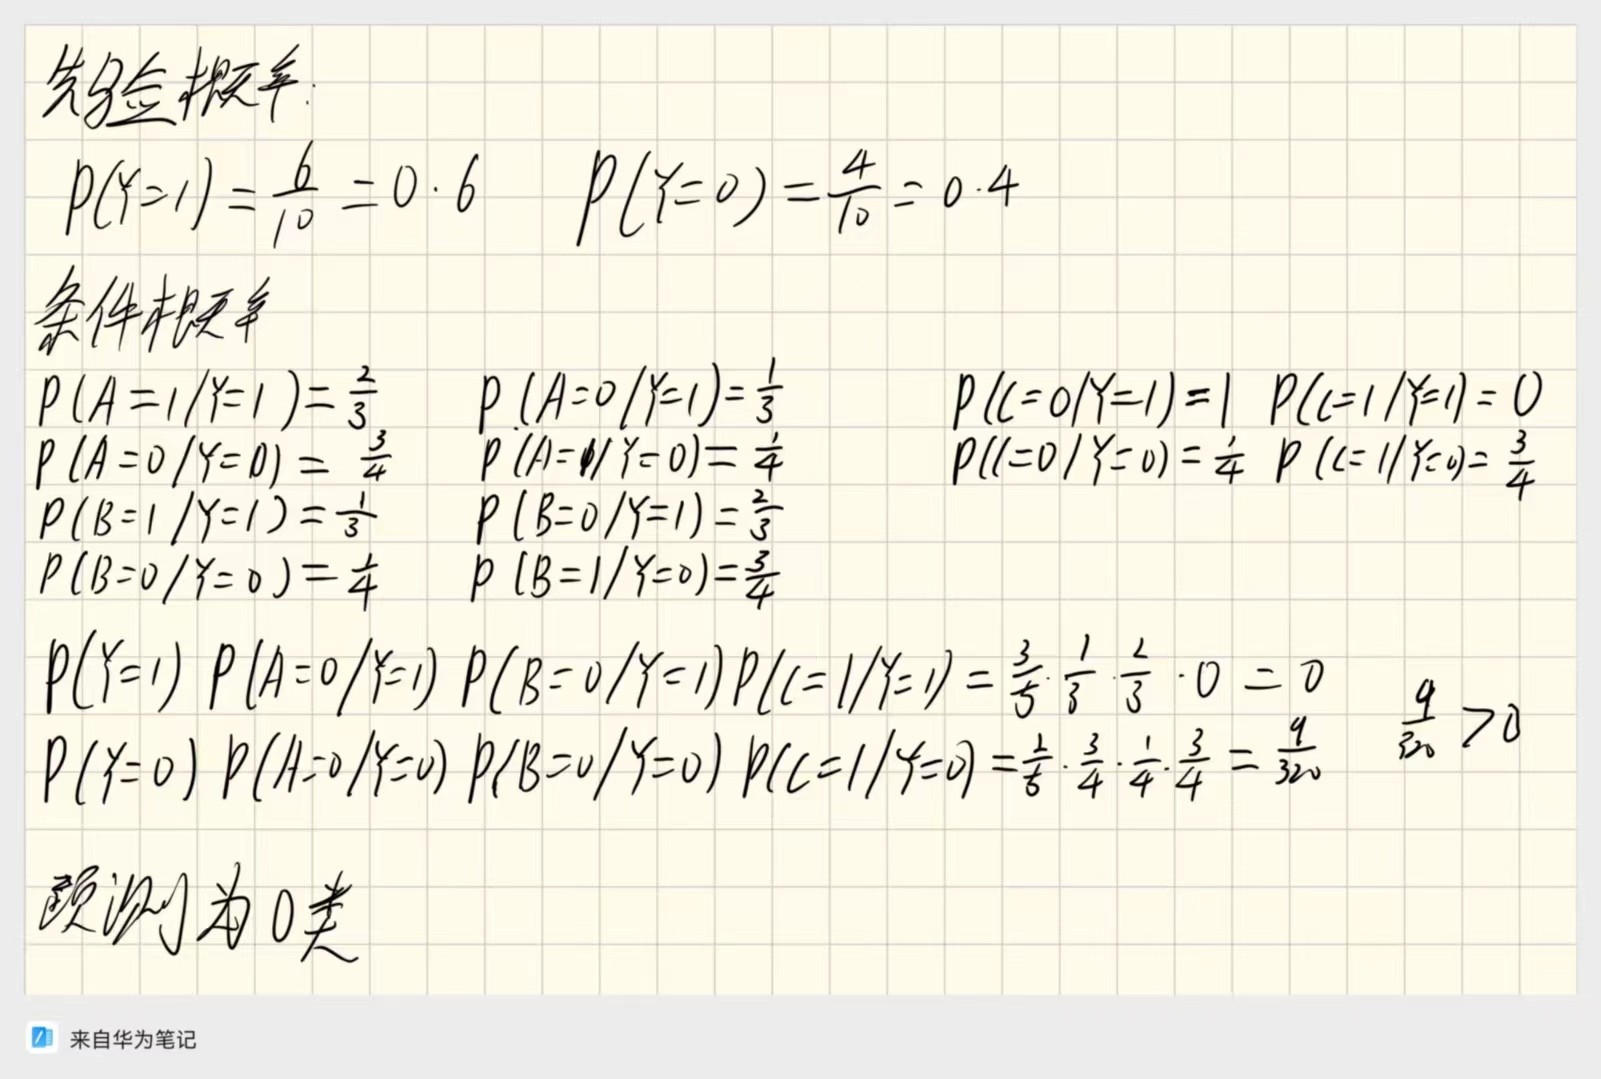 先验概率:
P(Y=1)=6/10=0.6 P(Y=0)=4/10=0.4
条件概率
P(A=1/Y=1)=2/3 P(A=0/Y=1)=1/3 P(C=0/Y=1)=1 P(C=1/Y=1)=0
P(A=0/Y=0)=3/4 P(A=1/Y=0)=1/4 P(C=0/Y=0)=1/4 P(C=1/Y=0)=3/4
P(B=1/Y=1)=1/3 P(B=0/Y=1)=2/3
P(B=0/Y=0)=1/4 P(B=1/Y=0)=3/4
P(Y=1) P(A=0/Y=1) P(B=0/Y=1) P(C=1/Y=1)=3/5·1/3·2/3·0=0
P(Y=0) P(A=0/Y=0) P(B=0/Y=0) P(C=1/Y=0)=2/5·3/4·1/4·3/4=9/320 9/320>0
预测为0类
来自华为笔记